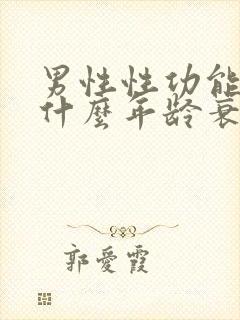 男性性功能
什麼年龄衰
郭愛霞